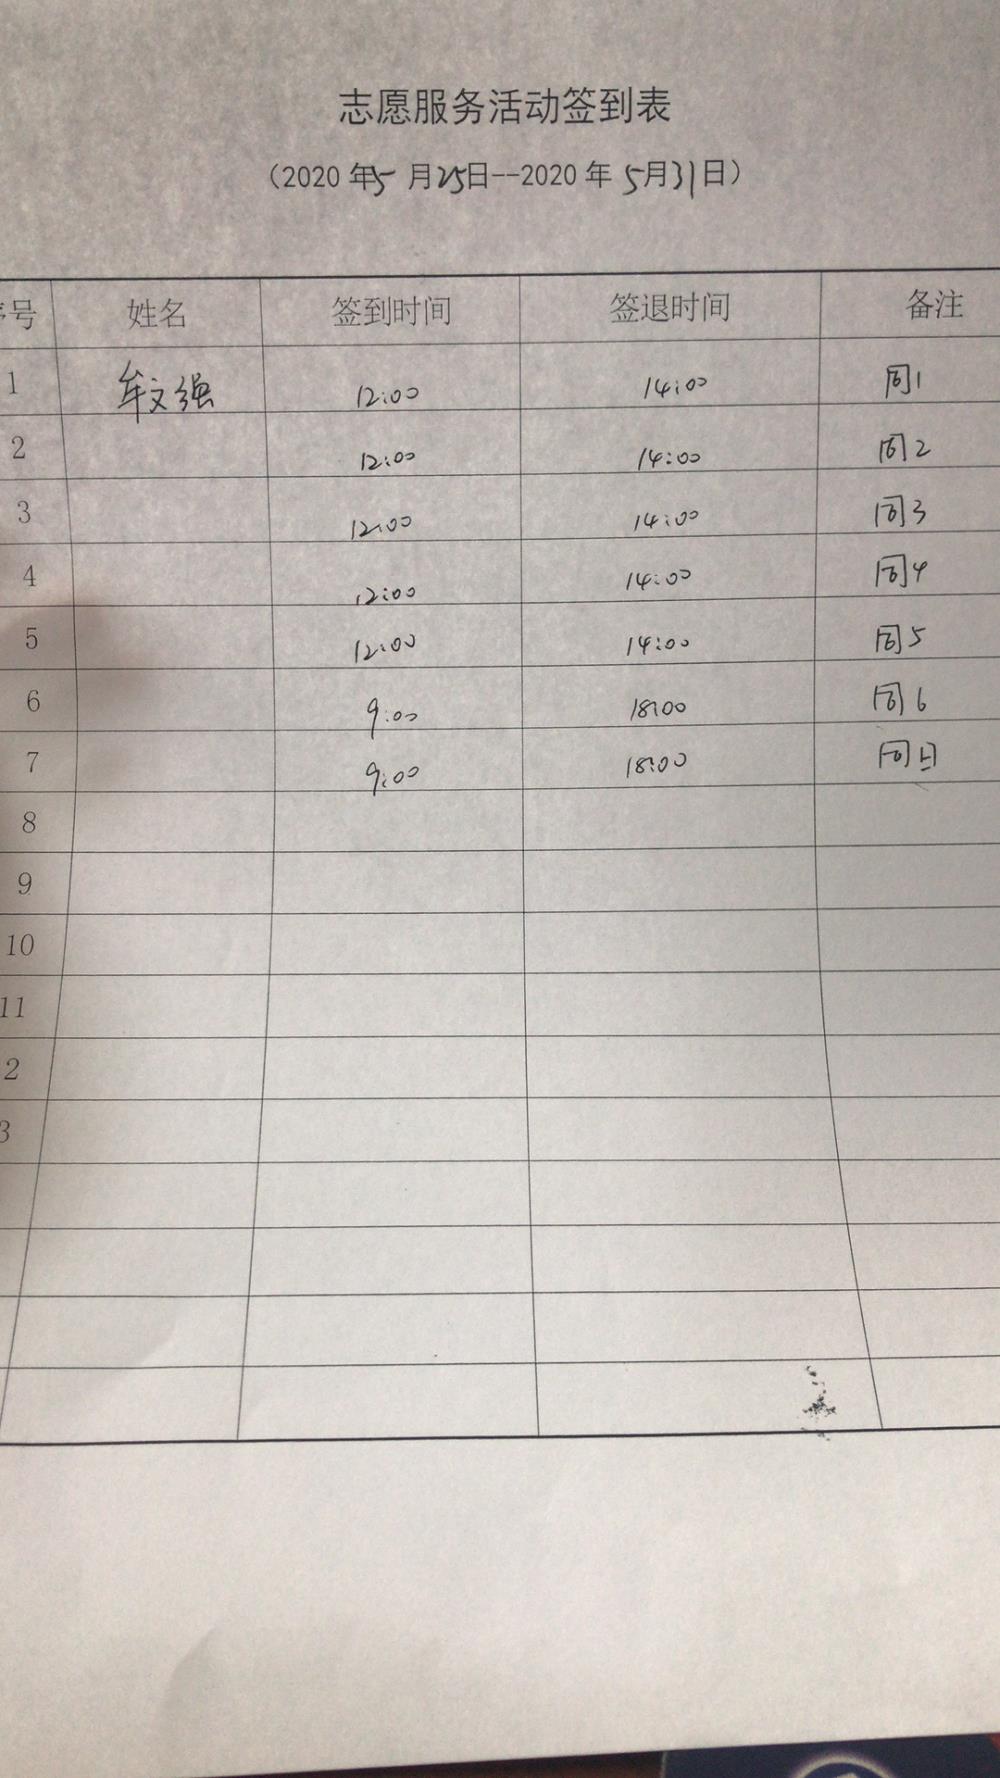 志愿服务活动签到表
（2020 年5 月25日--2020 年 5月31日）
序号 姓名 签到时间 签退时间 备注
1 牟文强 12:00 14:00 周1
2 12:00 14:00 周2
3 12:00 14:00 周3
4 12:00 14:00 周4
5 12:00 14:00 周5
6 9:00 18:00 周6
7 9:00 18:00 周日
8
9
10
11
2
3